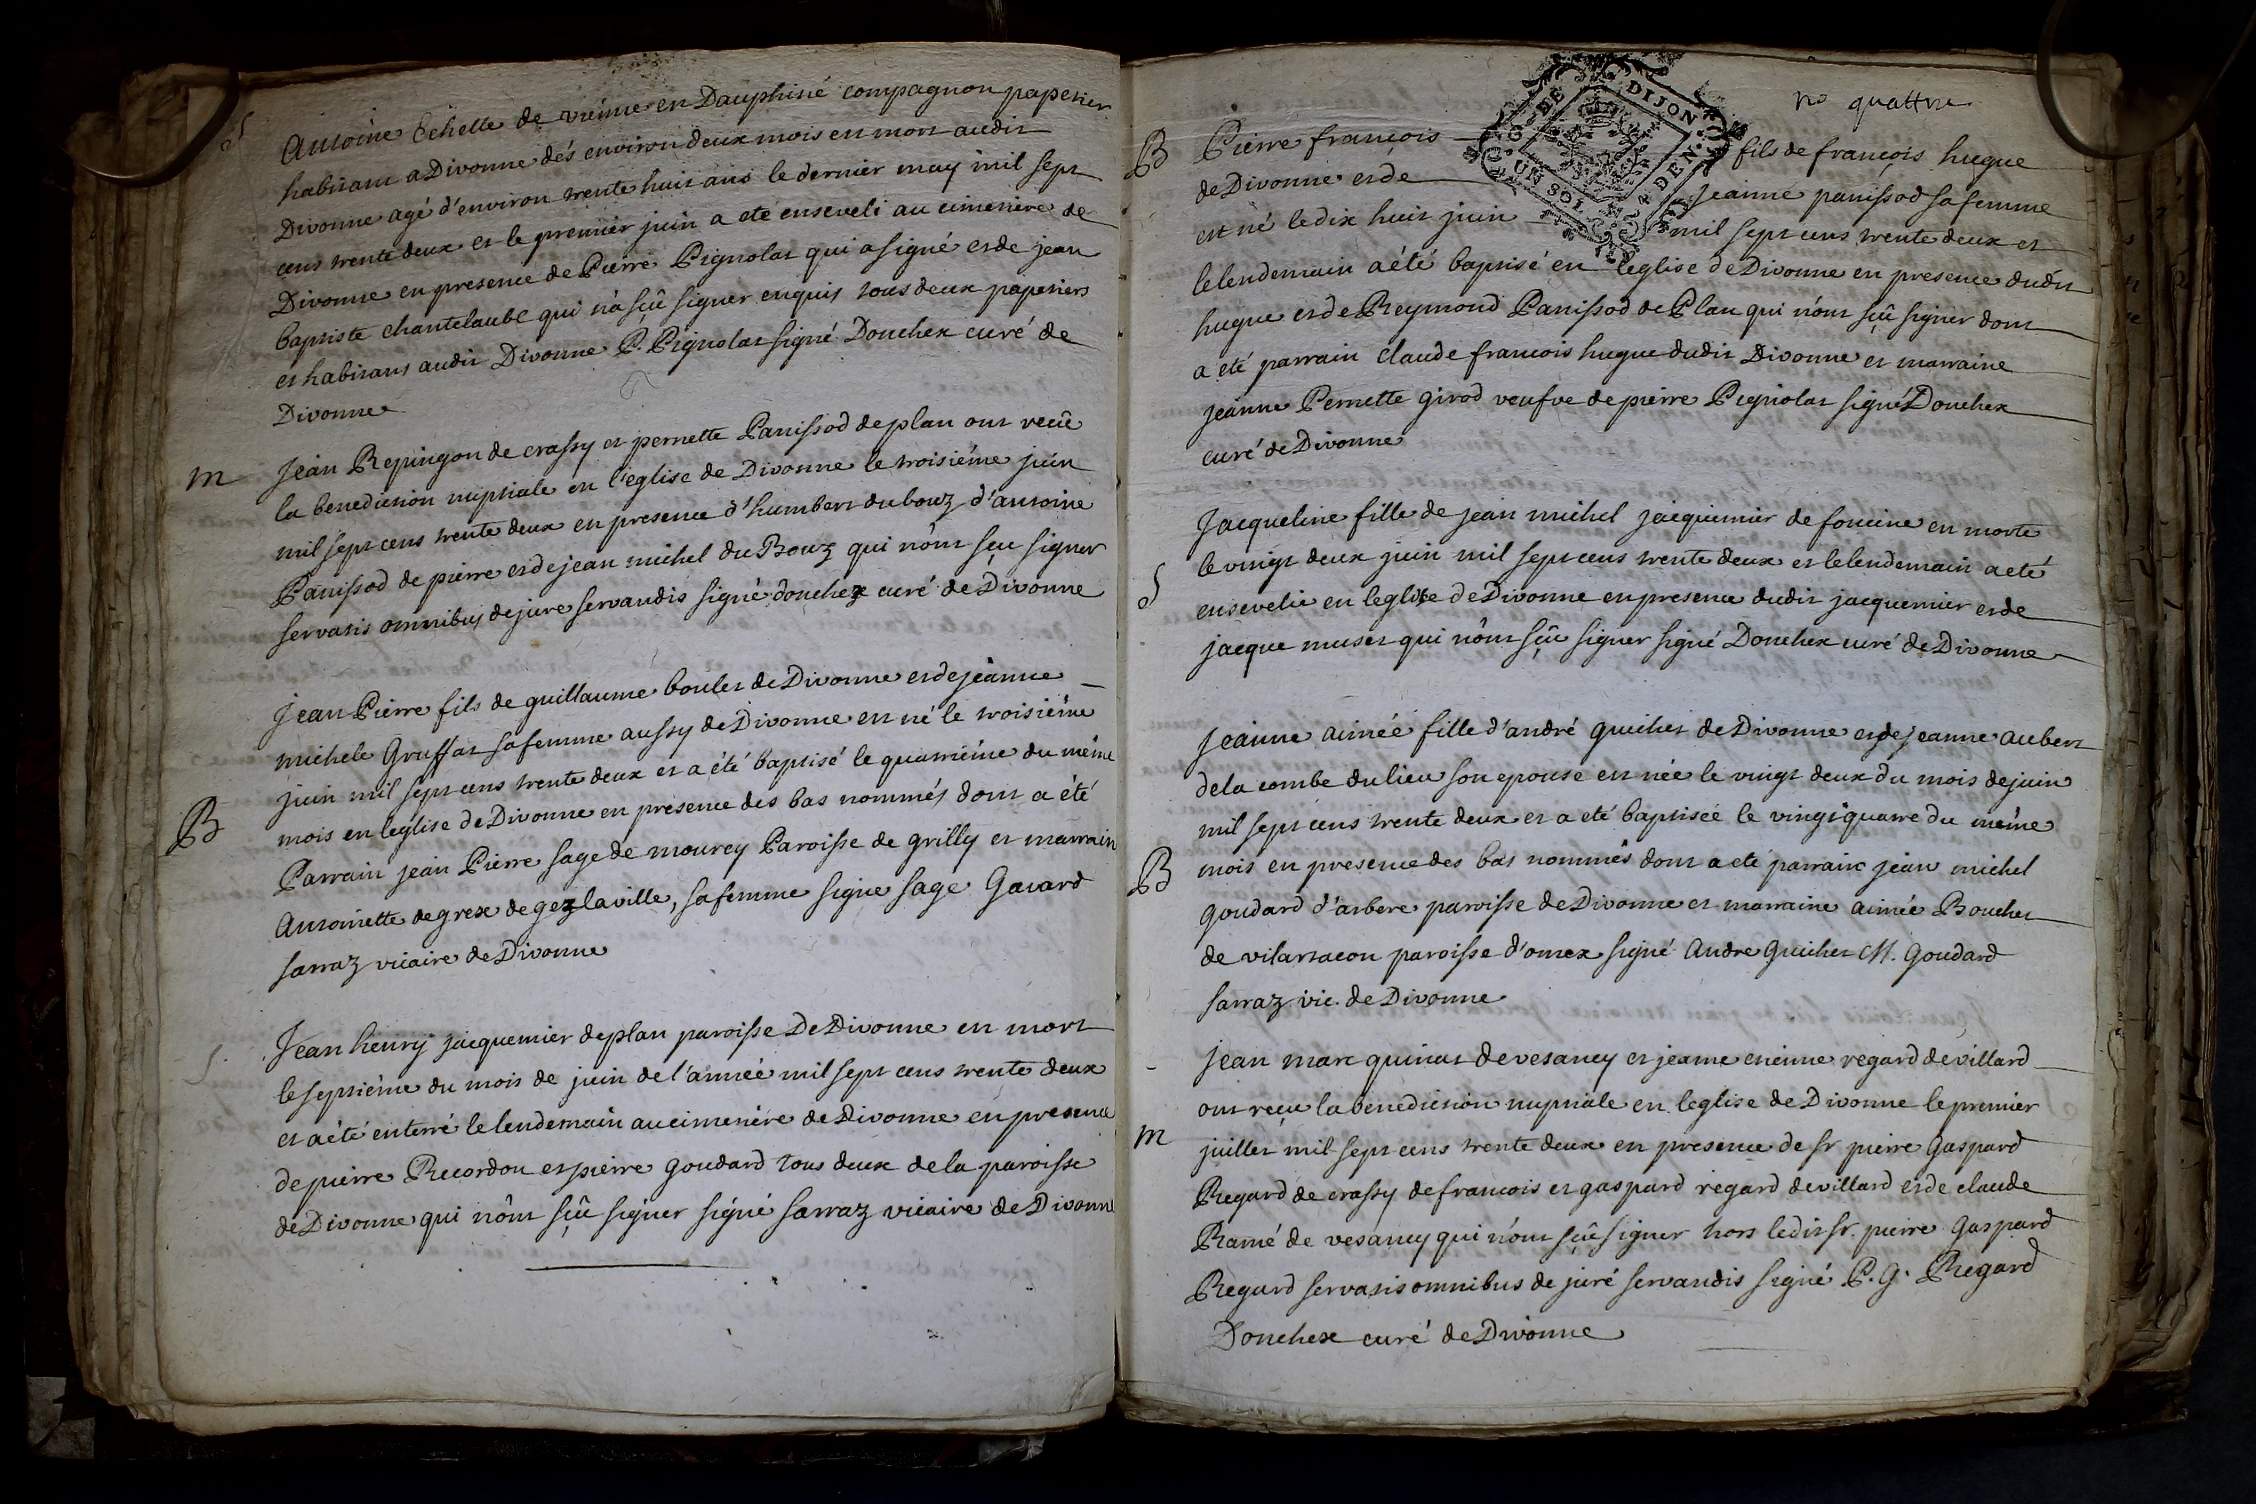 S
Antoine Echelle de vienne en Dauphiné compagnon papetier
habitant a Divonne dés environ deux mois est mort audit
Divonne agé d'environ trente huit ans le dernier may mil sept
cens trente deux et le premier juin a eté enseveli au cimetiere de
Divonne en presence de Pierre Pignolat qui a signé et de jean
baptiste chantelaube qui n'a sçû signer enquis tous deux papetiers
et habitans audit Divonne P. Pignolat signé Douchex curé de
Divonne
m
Jean Repingon de crassy et pernette Panissod de plan ont recû
la benediction nuptiale en l'eglise de Divonne le troisiéme juin
mil sept cens trente deux en presence d'humbert dubouz d'antoine
Panissod de pierre et de jean michel du Bouz qui n'ont sçu signer
servatis omnibus de jure servandis signé douchex curé de Divonne
B
Jean Pierre fils de guillaume boulet de Divonne et de jeanne
michele Gruffat sa femme aussy de Divonne est né le troisiéme
juin mil sept cens trente deux et a été baptisé le quatriéme du méme
mois en leglise de Divonne en presence des bas nommés dont a été
Parrain jean Pierre sage de mourey Paroisse de grilly et marrain
Antoinette degrex de gez la ville, sa femme signe sage Gavard
sarraz vicaire de Divonne
S.
Jean henry jacquemier de plan paroisse De Divonne est mort
le septiéme du mois de juin de l'année mil sept cens trente deux
et a été enterré le lendemain au cimetiére de Divonne en presence
de pierre Recordon et pierre goudard tous deux de la paroisse
de Divonne qui n'ont sçû signer signé sarraz vicaire de Divonne
no quattre
G. DE DIJON
UN SOL 4 DEN.
B
Pierre françois fils de françois hugue
de Divonne et de jeanne panissod sa femme
est né le dix huit juin mil sept cens trente deux et
le lendemain a été baptisé en leglise de Divonne en presence dudit
hugue et de Reymond Panissod de Plan qui n'ont sçû signer dont
a eté parrain claude francois hugue dudit Divonne et marraine
jeanne Pernette girod veufve de pierre Pignolat signé Douchex
curé de Divonne
S
Jacqueline fille de jean michel jacquemier de foncine est morte
le vingt deux juin mil sept cens trente deux et le lendemain a eté
ensevelie en leglise de Divonne en presence dudit jacquemier et de
jacque muset qui n'ont sçû signer signé Douchex curé de Divonne
B
Jeanne aimée fille d'andré guichet de Divonne et de jeanne aubert
de la combe du lieu son epouse est née le vingt deux du mois de juin
mil sept cens trente deux et a eté baptiseé le vingt quatre du méme
mois en presence des bas nommés dont a eté parrain jean michel
goudard d'arbere paroisse de Divonne et marraine aimée Bouchet
de vilartacon paroisse d'ornex signé Andre Guichet M. goudard
sarraz vic. de Divonne
m
jean marc quinat de vesancy et jeanne etienne regard de villard
ont reçu la benediction nuptiale en leglise de Divonne le premier
juillet mil sept cens trente deux en presence de sr pierre gaspard
Regard de crassy de francois et gaspard regard de villard et de claude
Ramé de vesancy qui n'ont sçû signer hors ledit sr. pierre Gaspard
Regard servatis omnibus de juré servandis signé P. G. Regard
Douchex curé de Divonne